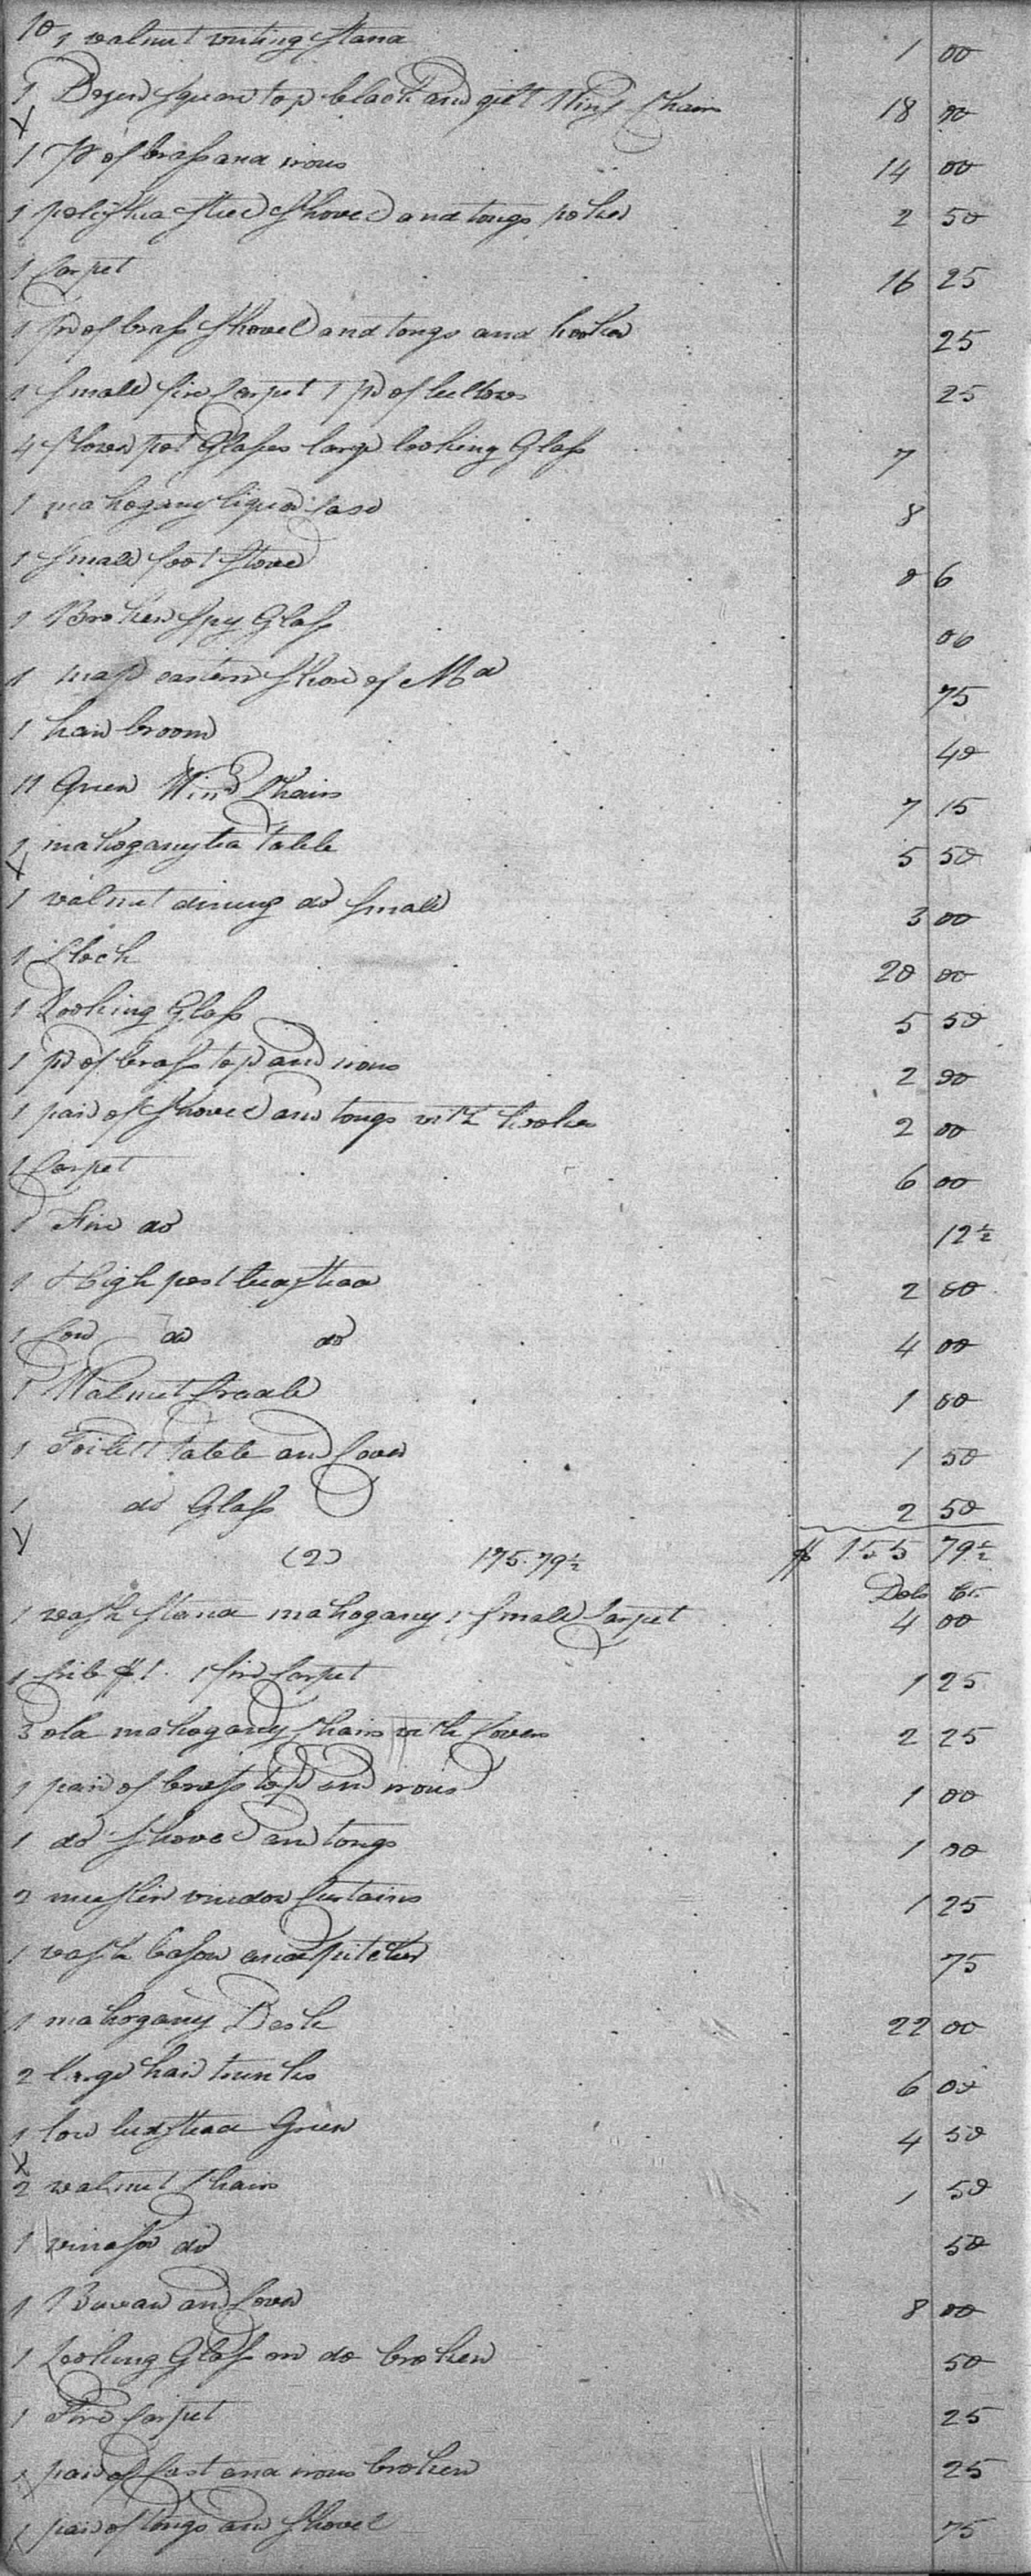 10 1 walnut writing stand 1 00
1 Dozen square top black and gilt Wins Chairs 18 00
1 Pr of brass and irons 14 00
1 polished steel shovel and tongs poker 2 50
1 Carpet 16 25
1 Pr of brass shovel and tongs and hooks 25
1 small fire Carpet 1 pr of bellows 25
4 flower pot Glasses large looking Glass 7
1 mahogany liquor Case 8
1 small foot stove 0 6
1 Broken spy Glass 06
1 map eastern shore of Md 75
1 hair broom 40
11 Green Wind Chairs 7 15
1 mahogany tea table 5 50
1 walnut dining do small 3 00
1 Clock 20 00
1 Looking Glass 5 50
1 pr of brass top and irons 2 00
1 pair of shovel and tongs with hooks 2 00
1 Carpet 6 00
1 Fire do 12½
1 High post bedstead 2 00
1 Low do do 4 00
1 Walnut Cradle 1 00
1 Toilett table and Cover 1 50
1 do Glass 2 50
(2) 175.79½ $ 155 79½
Dols Cts
1 wash stand mahogany 1 small Carpet 4 00
1 Crib $1. 1 fire Carpet 1 25
3 old mahogany Chairs with Covers 2 25
1 pair of brass top and irons 1 00
1 do shovel and tongs 1 00
2 muslin window Curtains 1 25
1 wash bason and pitcher 75
1 mahogany Desk 22 00
2 large hair trunks 6 00
1 low bedstead Green 4 50
2 walnut Chairs 1 50
1 winsor do 50
1 Bureau and Cover 8 00
1 Looking Glass on do broken 50
1 Fire Carpet 25
1 pair of Cast and irons broken 25
1 pair of tongs and shovel 75